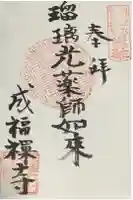 奉拝
瑠璃光薬師如来
成福禅寺